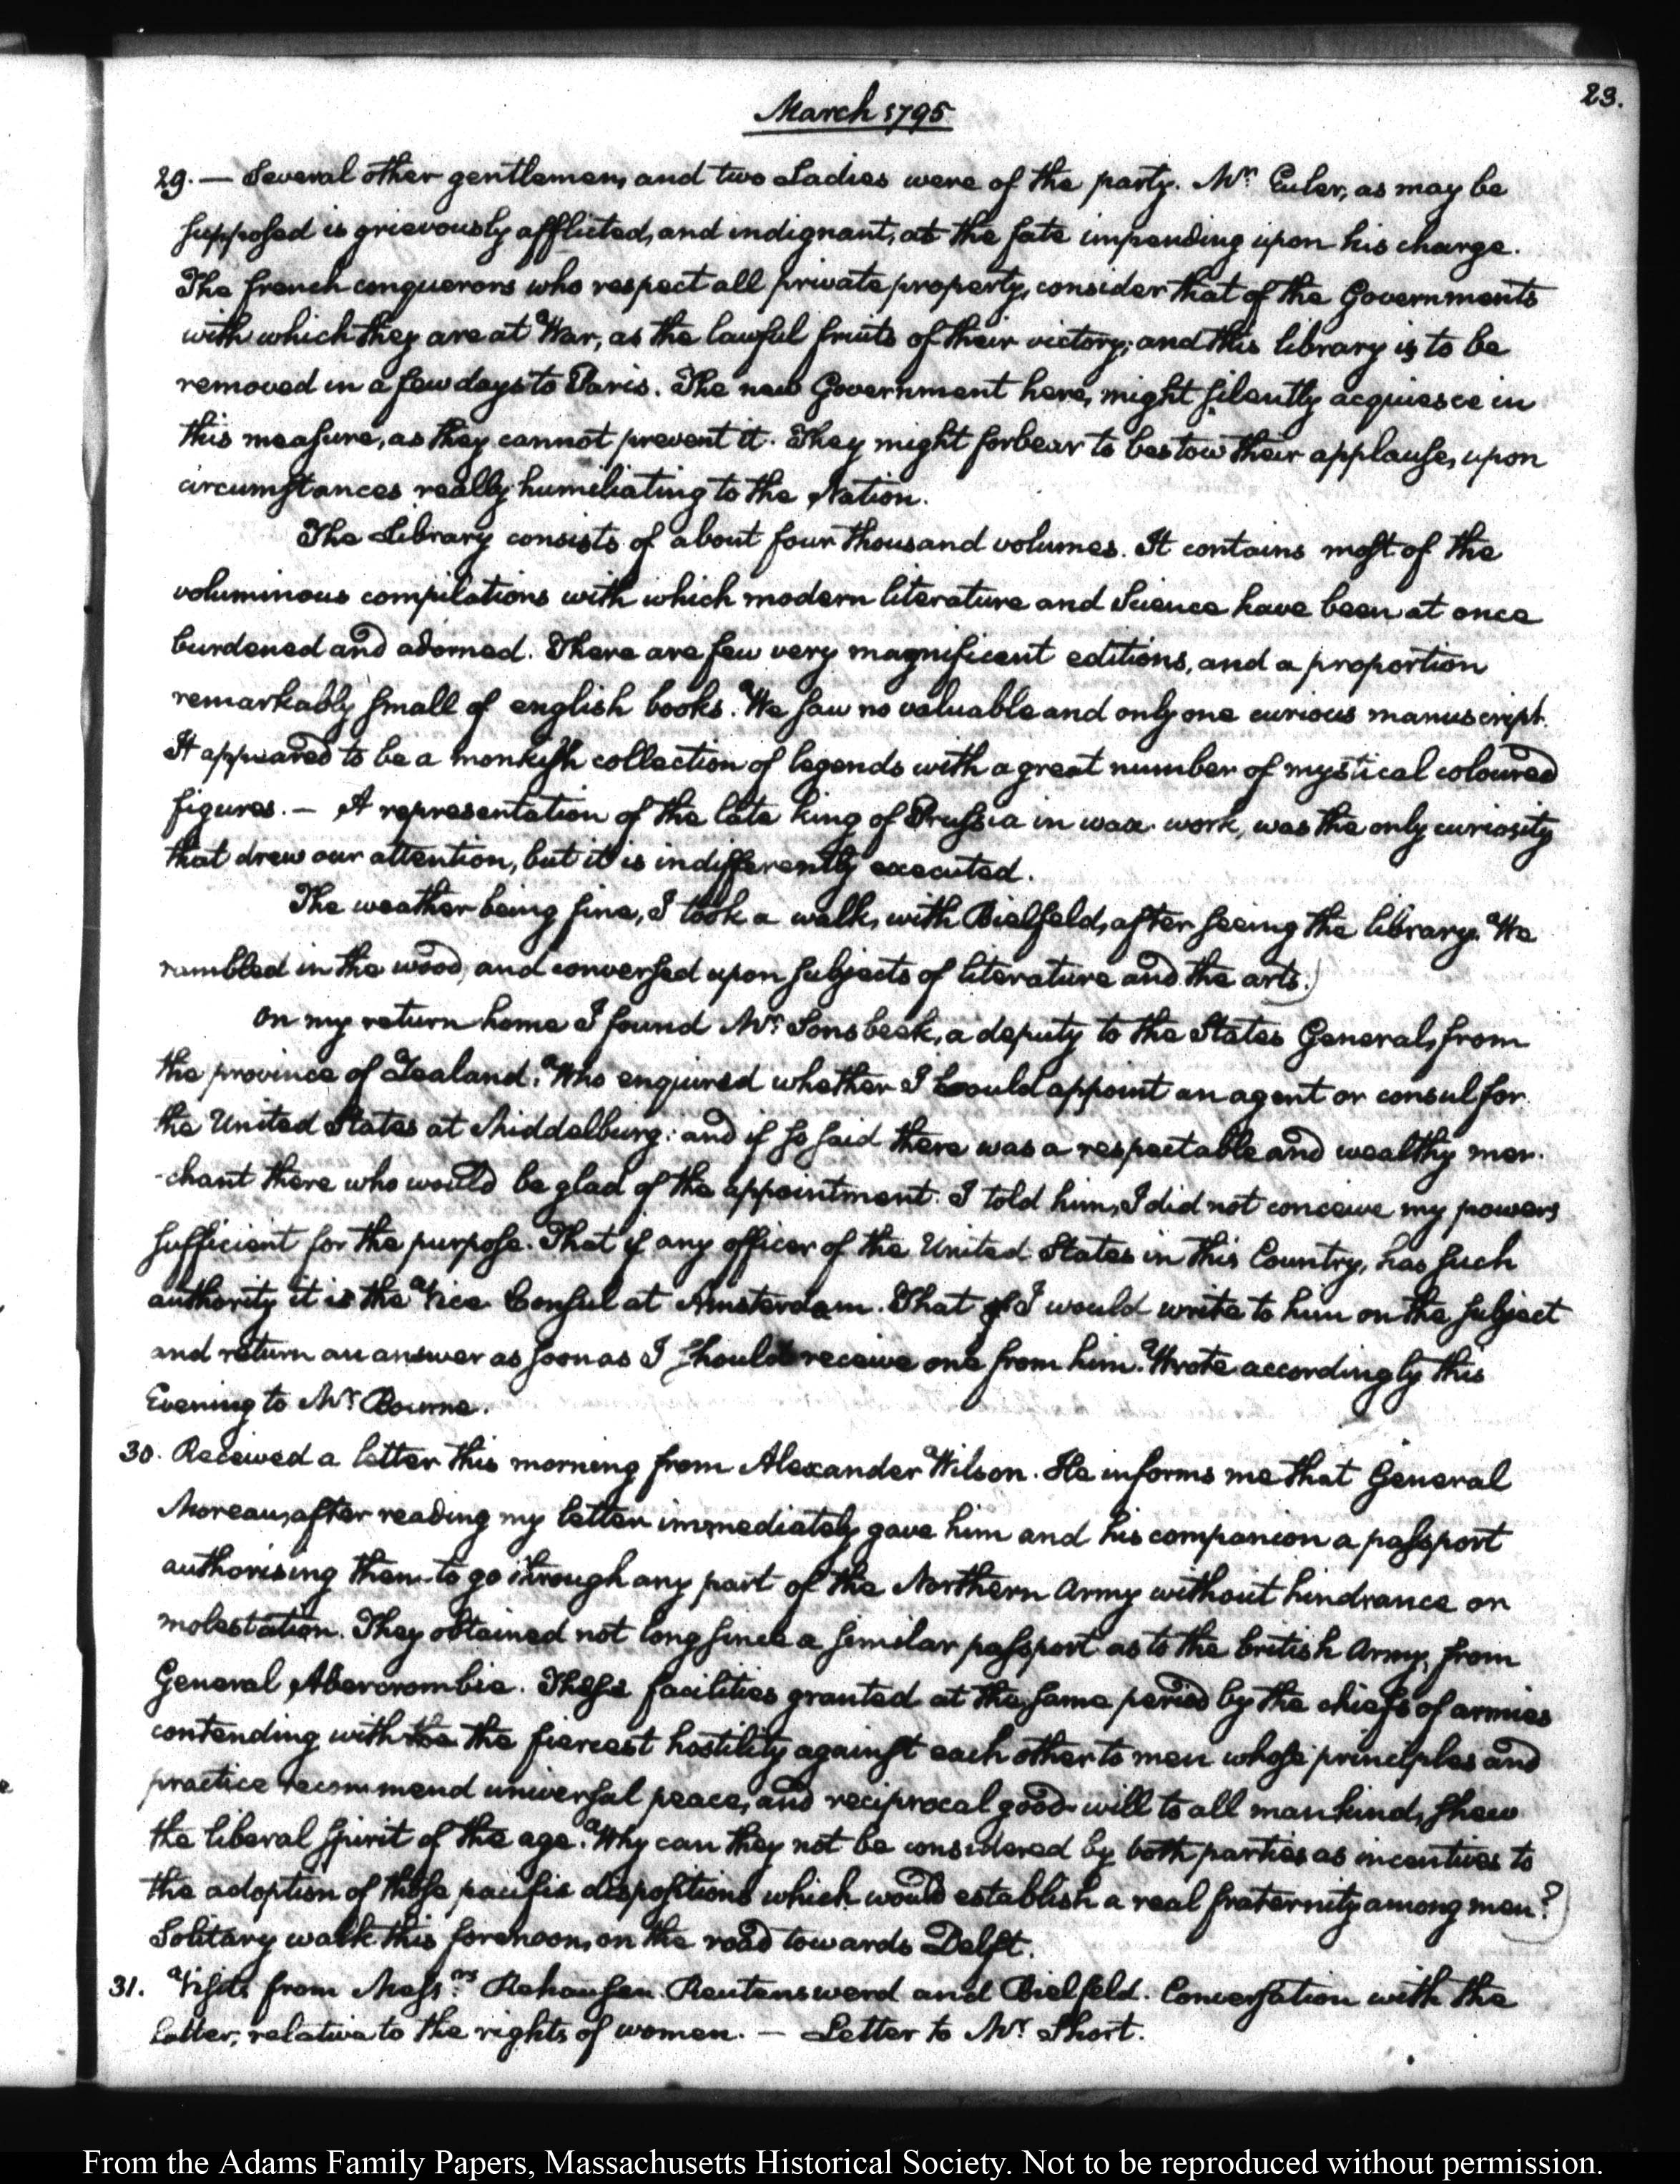 23.
March 1795
29. — Several other gentlemen, and two Ladies were of the party. Mr. Euler, as may be
supposed is grievously afflicted, and indignant, at the fate impending upon his charge.
The french conquerors who respect all private property, consider that of the Governments
with which they are at War, as the lawful fruits of their victory; and this library is to be
removed in a few days to Paris. The new Government here, might silently acquiesce in
this measure, as they cannot prevent it. They might forbear to bestow their applause, upon
circumstances really humiliating to the Nation.
The Library consists of about four thousand volumes. It contains most of the
voluminous compilations with which modern literature and Science have been at once
burdened and adorned. There are few very magnificent editions, and a proportion
remarkably small of english books. We saw no valuable and only one curious manuscript.
It appeared to be a monkish collection of legends with a great number of mystical coloured
figures. — A representation of the late king of Prussia in wax work, was the only curiosity
that drew our attention, but it is indifferently executed.
The weather being fine, I took a walk, with Bielfeld, after seeing the library. We
rambled in the wood, and conversed upon subjects of literature and the arts.)
On my return home I found Mr. Sonsbeek, a deputy to the States General, from
the province of Zealand. Who enquired whether I could appoint an agent or consul for
the United States at Middelburg: and if so said there was a respectable and wealthy mer-
-chant there who would be glad of the appointment. I told him, I did not conceive my powers
sufficient for the purpose. That if any officer of the United States in this Country, has such
authority it is the Vice Consul at Amsterdam. That if I would write to him on the subject
and return an answer as soon as I should receive one from him. Wrote accordingly this
Evening to Mr. Bourne.
30. Received a letter this morning from Alexander Wilson. He informs me that General
Moreau, after reading my letter immediately gave him and his companion a passport
authorising them to go through any part of the Northern Army without hindrance or
molestation. They obtained not long since a similar passport as to the british Army, from
General Abercrombie. These facilities granted at the same period by the chiefs of armies
contending with the the fiercest hostility against each other to men whose principles and
practice recommend universal peace, and reciprocal good will to all mankind, shew
the liberal spirit of the age. Why can they not be considered by both parties as incentives to
the adoption of those pacific dispositions which would establish a real fraternity among men?)
Solitary walk this forenoon, on the road towards Delft.
31. Visits from Messrs. Rehausen. Reutensverd and Bielfeld. Conversation with the
latter, relative to the rights of women. — Letter to Mr. Short.
From the Adams Family Papers, Massachusetts Historical Society. Not to be reproduced without permission.